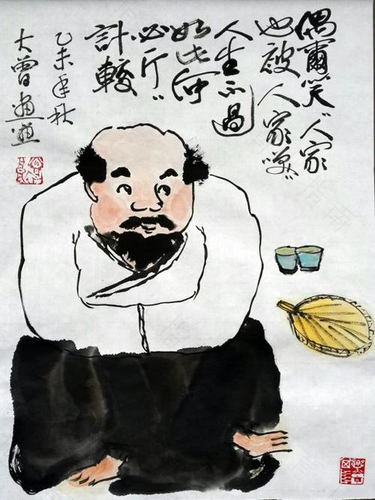 偶爾笑〃人家
也被人家咲〃
人生不過
如此何
必斤〃
計較
乙未年秋
大曾